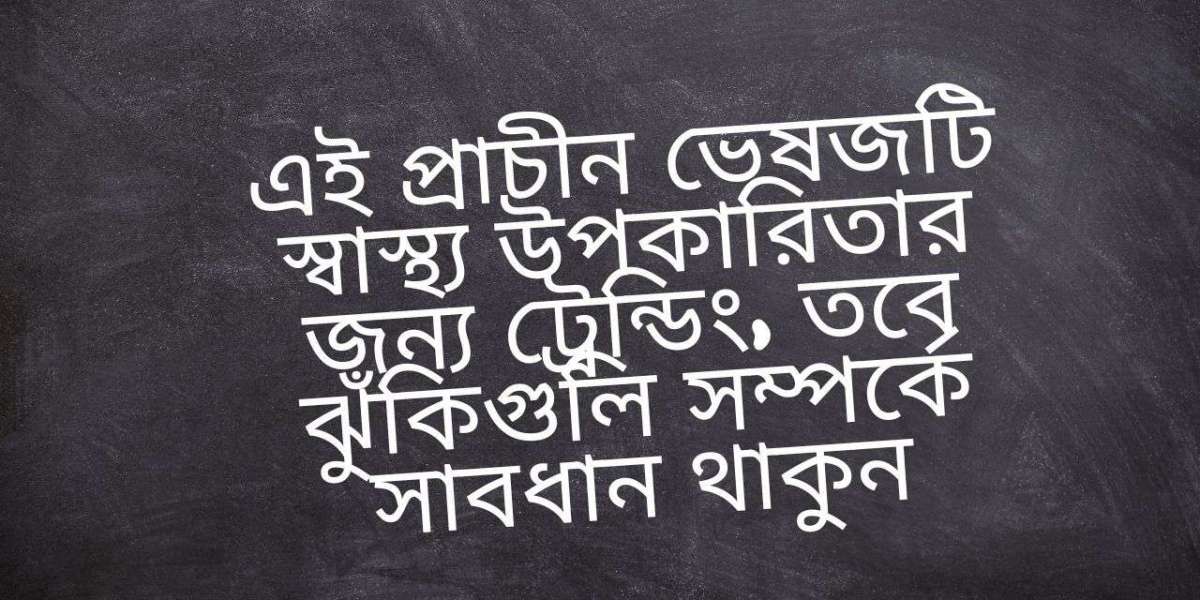 এই প্রাচীন ভেষজটি
স্বাস্থ্য উপকারিতার
জন্য ট্রেন্ডিং, তবে
ঝুঁকিগুলি সম্পর্কে
সাবধান থাকুন